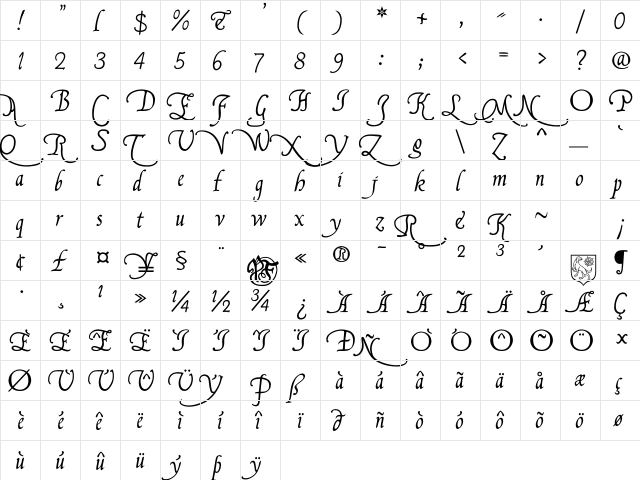 ! " [ $ % & ' ( ) * + , - . / 0
1 2 3 4 5 6 7 8 9 : ; < = > ? @
A B C D E F G H I J K L M N O P
Q R S T U V W X Y Z \ ^ _ `
a b c d e f g h i j k l m n o p
q r s t u v w x y z ~ ¡
¢ £ ¤ ¥ § ¨ « ® ¯ ° 2 3 ´ ¶
· ¸ 1 » ¼ ½ ¾ ¿ À Á Â Ã Ä Å Æ Ç
È É Ê Ë Ì Í Î Ï Ð Ñ Ò Ó Ô Õ Ö ×
Ø Ù Ú Û Ü Ý Þ ß à á â ã ä å æ ç
è é ê ë ì í î ï ð ñ ò ó ô õ ö ø
ù ú û ü ý þ ÿ